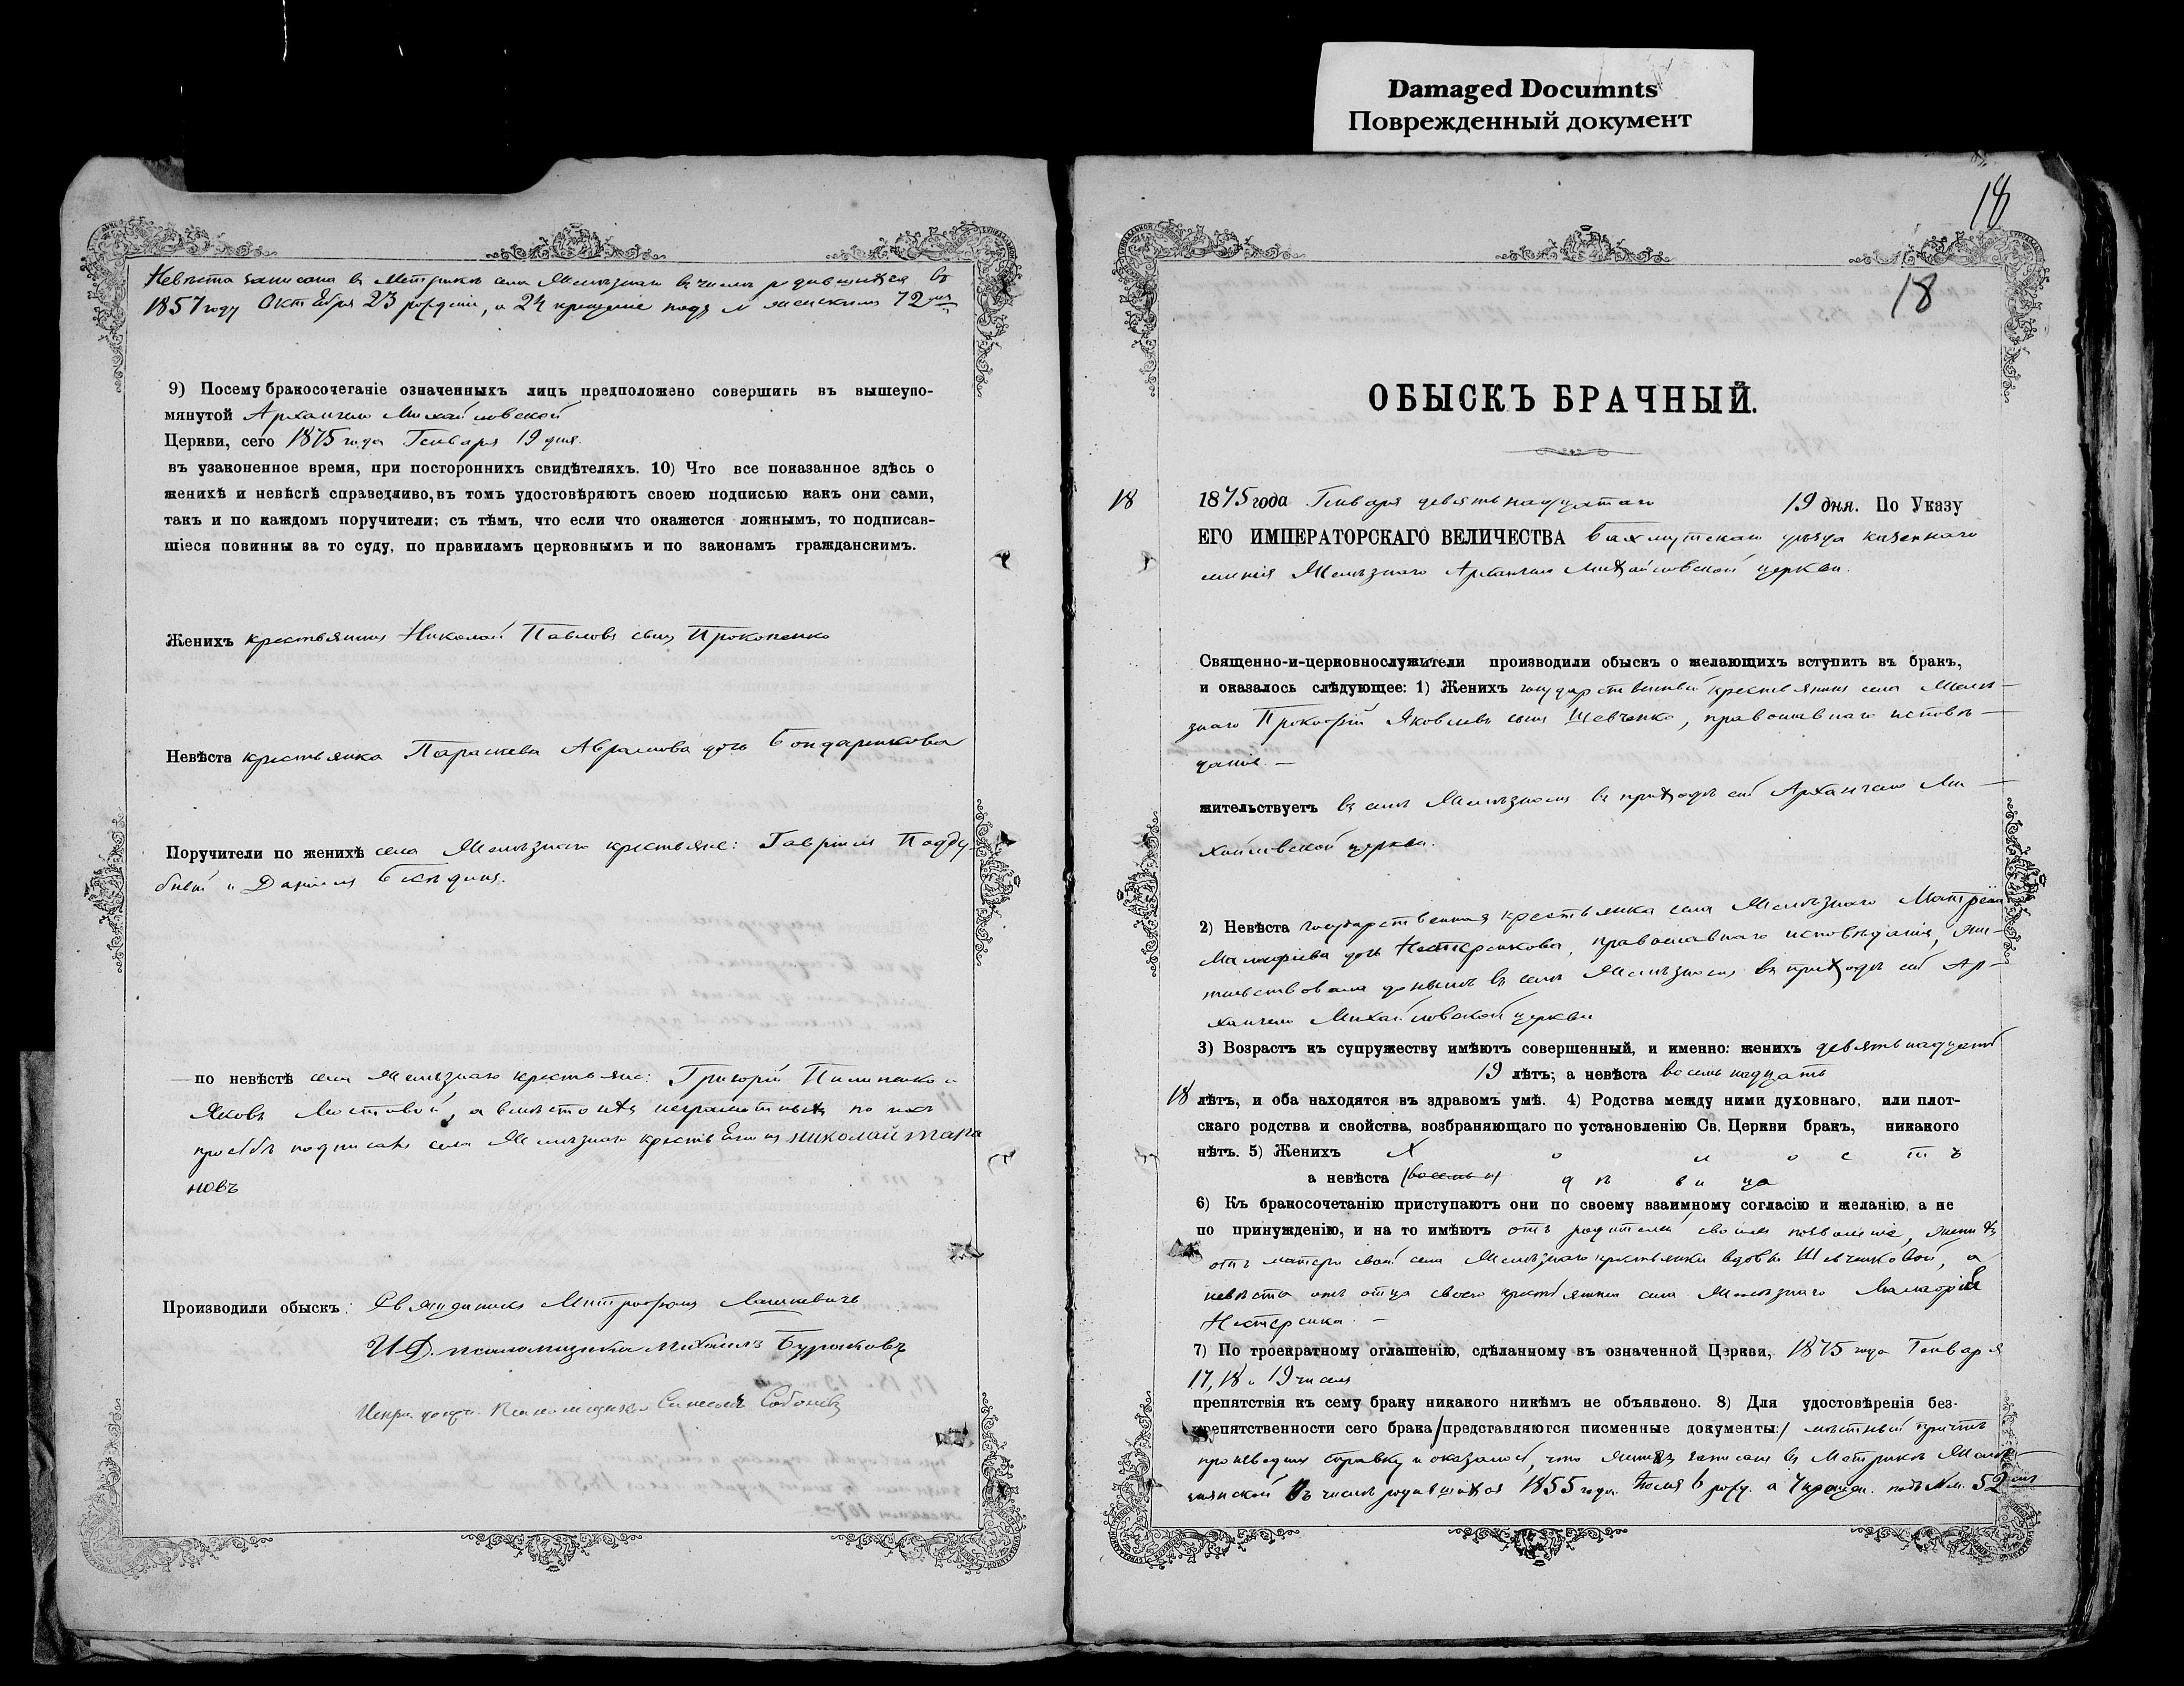 Damaged Documnts
Поврежденный документ
Невѣста записана въ Метрикѣ села Желѣзнаго въ числѣ родившихся въ
1857 году Октября 23 рожденіе, а 24 крещеніе подъ № женскимъ 72
9) Посему бракосочетаніе означенныхъ лицъ предположено совершить въ вышеупо-
мянутой Архангело Михайловской
Церкви, сего 1875 года Генваря 19 дня.
въ узаконенное время, при постороннихъ свидѣтеляхъ. 10) Что все показанное здѣсь о
женихѣ и невѣстѣ справедливо, въ томъ удостовѣряютъ своею подписью какъ они сами,
такъ и по каждомъ поручители; съ тѣмъ, что если что окажется ложнымъ, то подписав-
шіеся повинны за то суду, по правиламъ церковнымъ и по законамъ гражданскимъ.
Женихъ крестьянинъ Николай Павловъ сынъ Прокопенко
Невѣста крестьянка Параскева Абрамова дочь Бондаренкова
Поручители по женихѣ села Желѣзнаго крестьяне: Гавріилъ Подду-
бный и Даніилъ
— по невѣстѣ села Желѣзнаго крестьяне: Григорій Пилипенко и
Яковъ Мостовой, а вмѣсто ихъ неграмотныхъ по ихъ
просьбѣ подписалъ села Желѣзнаго крестьянинъ Николай Тара
новъ
Производили обыскъ: Священникъ Митрофанъ Лашкевичъ
И.Д. псаломщика Михаилъ Бураковъ
псаломщика
18
18
ОБЫСКЪ БРАЧНЫЙ.
18 1875 года Генваря девятьнадцатаго 19 дня. По Указу
ЕГО ИМПЕРАТОРСКАГО ВЕЛИЧЕСТВА Бахмутскаго уѣзда казеннаго
селенія Желѣзнаго Архангело Михайловской церкви.
Священно-и-церковнослужители производили обыскъ о желающихъ вступить въ бракъ,
и оказалось слѣдующее: 1) Женихъ государственный крестьянинъ села Желѣ—
знаго Прокофій Яковлевъ сынъ Шевченко, православнаго исповѣ—
данія. —
жительствуетъ въ селѣ Желѣзномъ въ приходѣ сей Архангело Ми—
хайловской церкви.
2) Невѣста государственная крестьянка села Желѣзнаго Матрёна
Малофіева дочь Нестеренкова, православнаго исповѣданія, жи—
тельствовала донынѣ въ селѣ Желѣзномъ въ приходѣ сей Ар—
хангело Михайловской церкви
3) Возрастъ къ супружеству имѣютъ совершенный, и именно: женихъ девятьнадцать
19 лѣтъ; а невѣста восемьнадцать
18 лѣтъ, и оба находятся въ здравомъ умѣ. 4) Родства между ними духовнаго, или плот-
скаго родства и свойства, возбраняющаго по установленію Св. Церкви бракъ, никакого
нѣтъ. 5) Женихъ Х о л о с т ъ
а невѣста д ѣ в и ца
6) Къ бракосочетанію приступаютъ они по своему взаимному согласію и желанію, а не
по принужденію, и на то имѣютъ отъ родителей своихъ позволеніе, женихъ
отъ матери своей села Желѣзнаго крестьянки вдовы Шевченковой, а
невѣста отъ отца своего крестьянина села Желѣзнаго Малафія
Нестеренка. —
7) По троекратному оглашенію, сдѣланному въ означенной Церкви, 1875 года Генваря
17, 18 и 19 числа
препятствія къ сему браку никакого никѣмъ не объявлено. 8) Для удостовѣренія без-
препятственности сего брака /представляются писменные документы:/ мѣстный причтъ
производилъ справку и оказалось, что женихъ записанъ въ Метрикѣ
въ числѣ родившихся 1855 года Іюля 6 рожд. а 7 крещен. подъ №м. 52